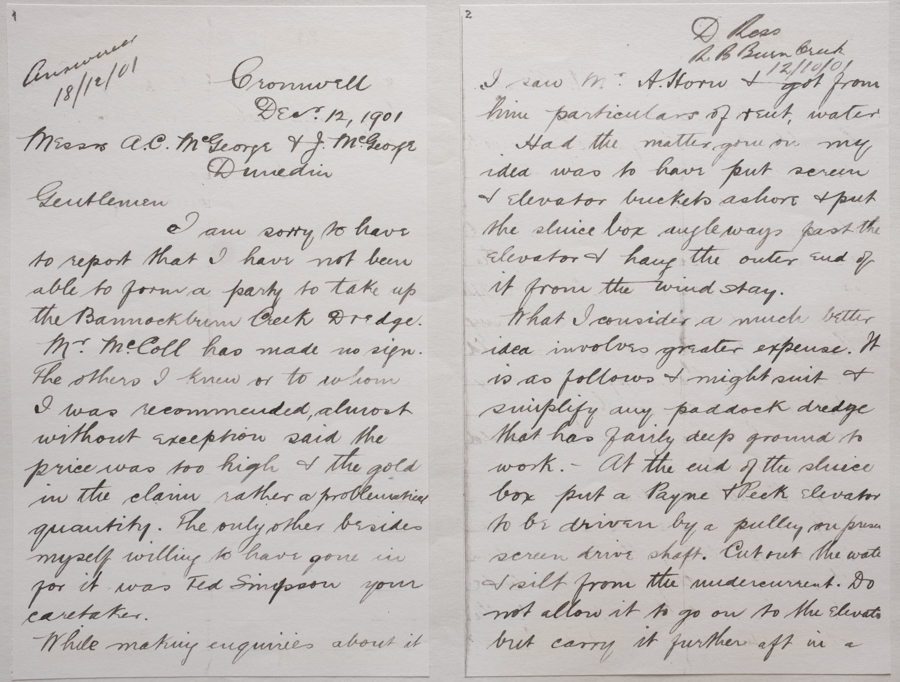 1
Answered
18/12/01
Cromwell
Decr. 12, 1901
Messrs A.C. McGeorge & J. McGeorge
Dunedin
Gentlemen
I am sorry to have
to report that I have not been
able to form a party to take up
the Bannockburn Creek Dredge.
Mr. McColl has made no sign.
The others I knew or to whom
I was recommended, almost
without exception said the
price was too high & the gold
in the claim rather a problematical
quantity. The only other besides
myself willing to have gone in
for it was Ted Simpson your
caretaker.
While making enquiries about it
2
D Ross
Burn Creek
12/10/01
I saw Mr. A. Horn & got from
him particulars of rent, water
Had the matter gone on my
idea was to have put screen
& elevator buckets ashore & put
the sluice box angleways past the
elevator & hang the outer end of
it from the wind stay.
What I consider a much better
idea involves greater expense. It
is as follows & might suit &
simplify any paddock dredge
that has fairly deep ground to
work. - At the end of the sluice
box put a Payne & Peck Elevator
to be driven by a pulley on
screen drive shaft. Cut out the wate
& silt from the undercurrent. Do
not allow it to go on to the Elevato
but carry it further aft in a